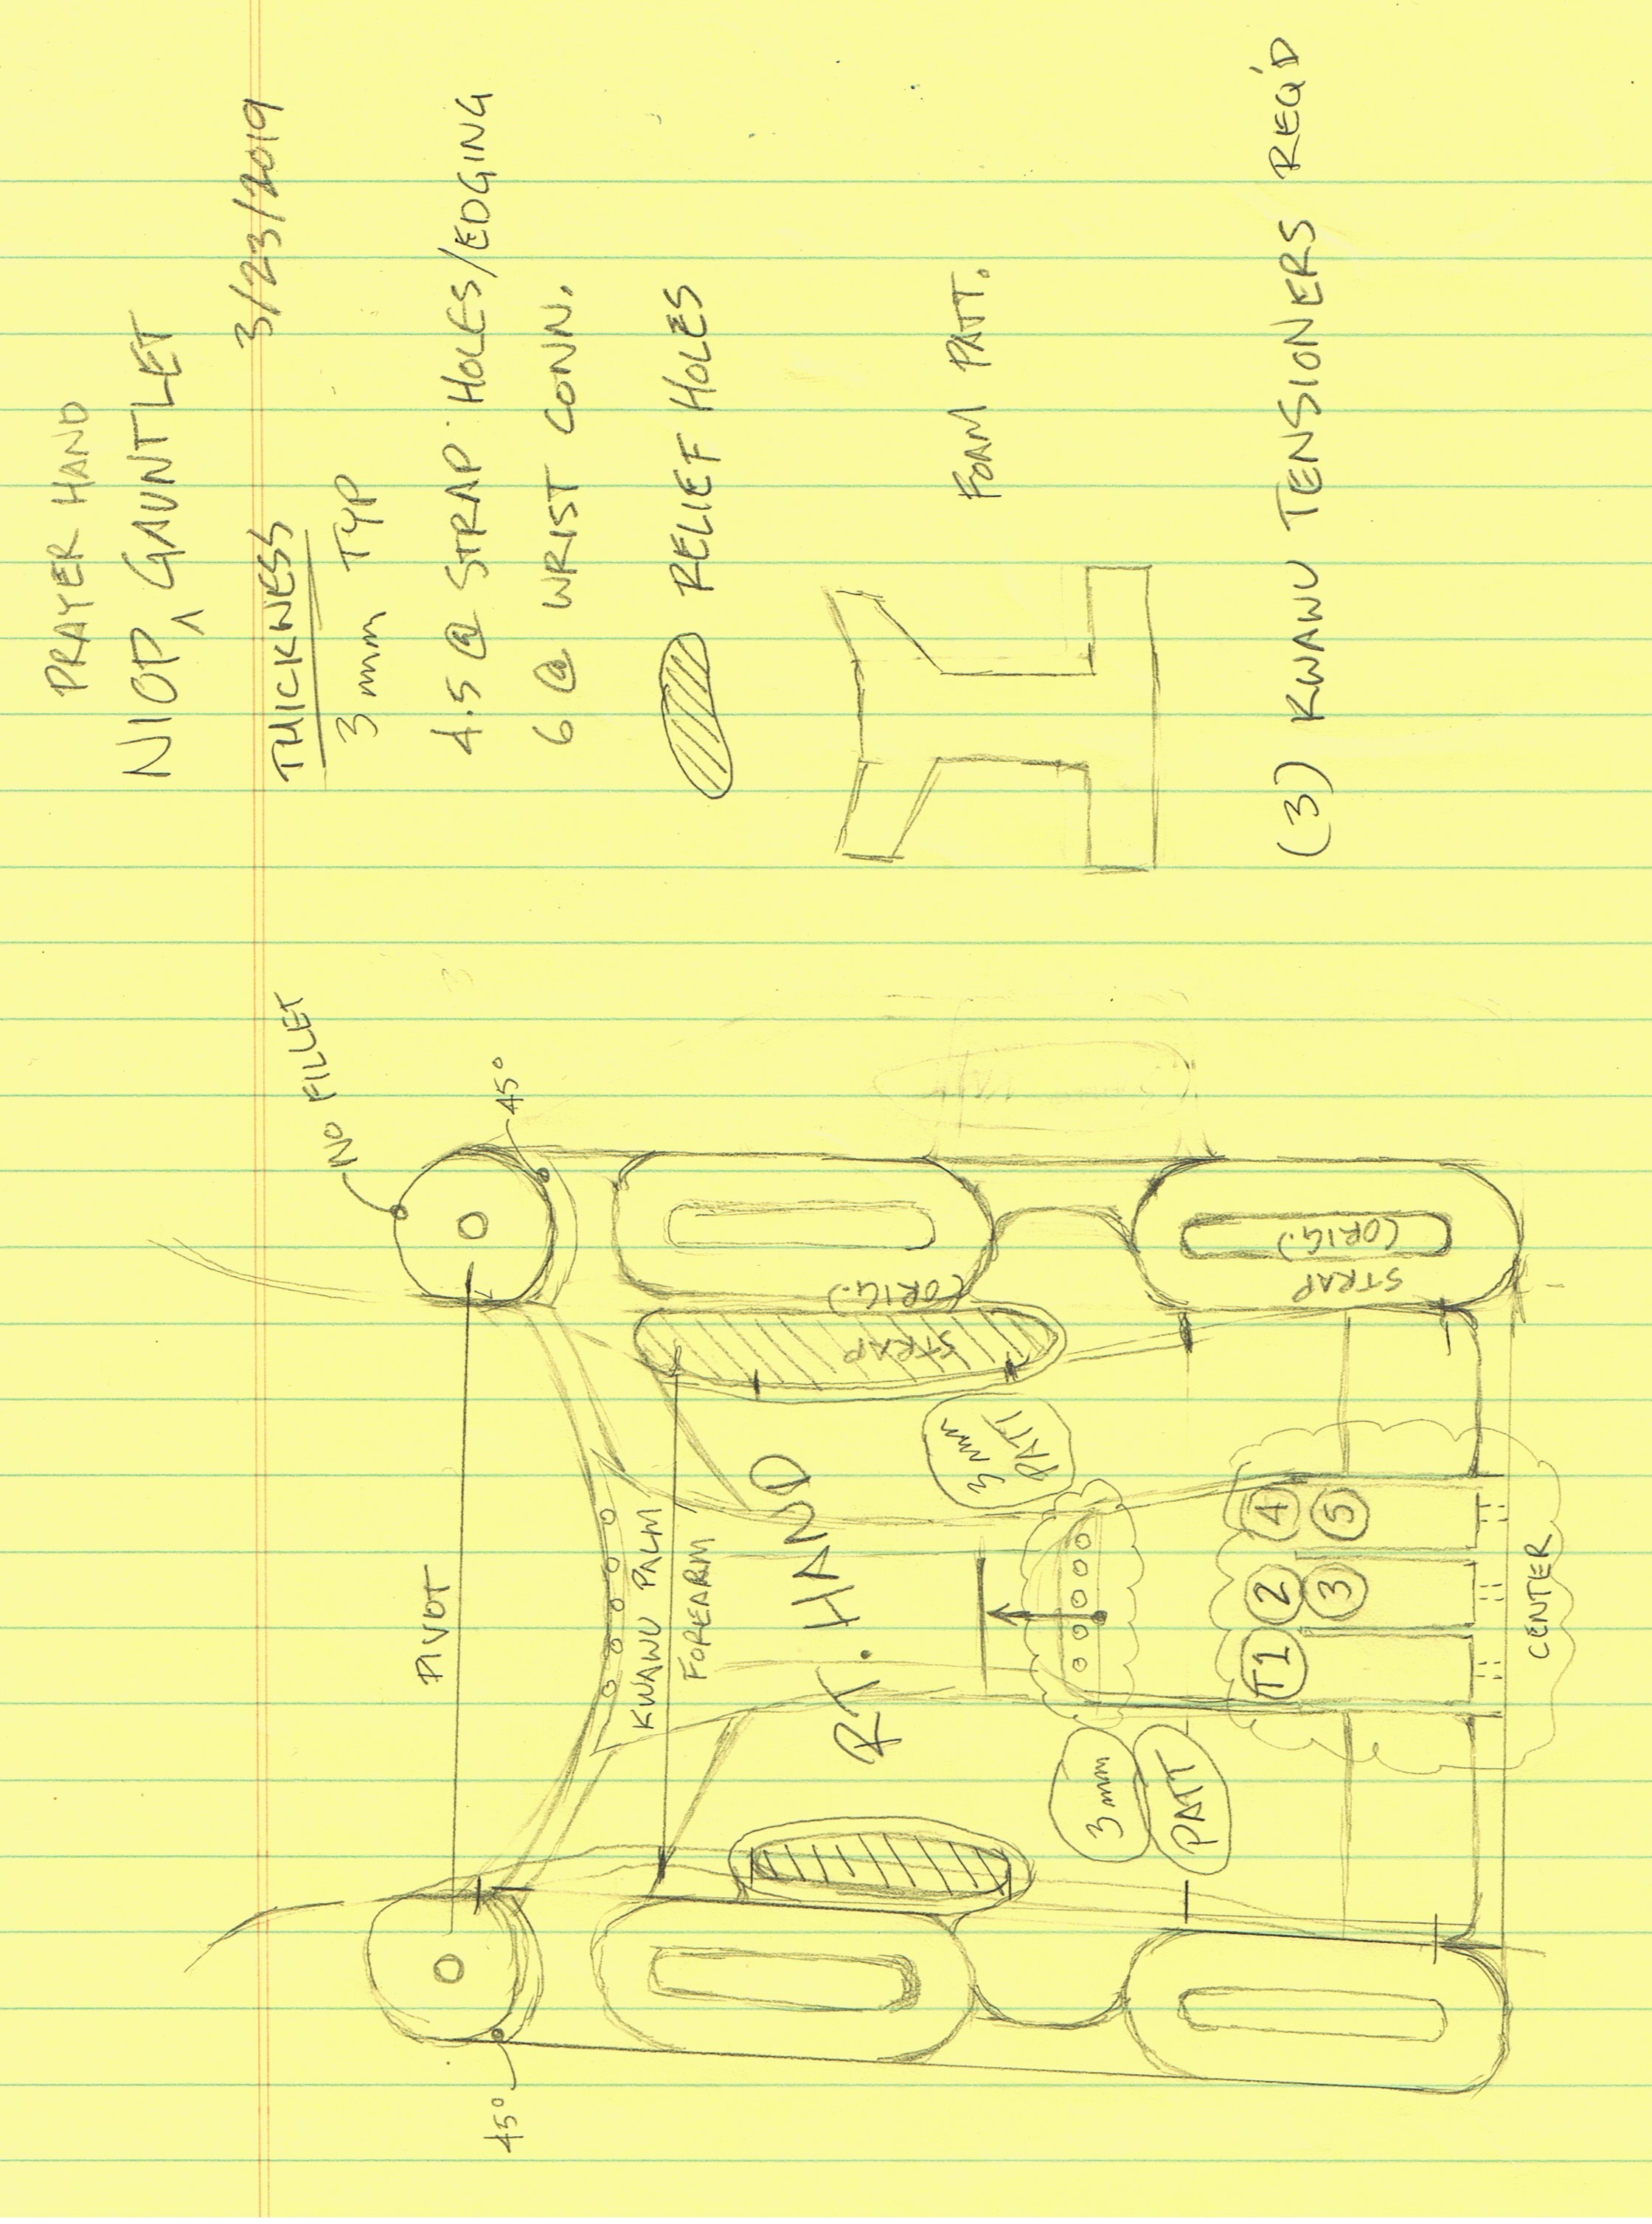 PRAYER HAND
NIOP ^ GAUNTLET
3/23/2019
THICKNESS
3 mm TYP
4.5 @ STRAP HOLES/EDGING
6 @ WRIST CONN.
RELIEF HOLES
FORM PATT.
(3) KWAWU TENSIONERS REQ'D
NO FILLET
45°
PIVOT
45°
KWAWU PALM
FOREARM
RT. HAND
STRAP
(ORIG.)
STRAP
(ORIG.)
3 mm
PATT
3 mm
PATT
T1 2 4
3 5
CENTER